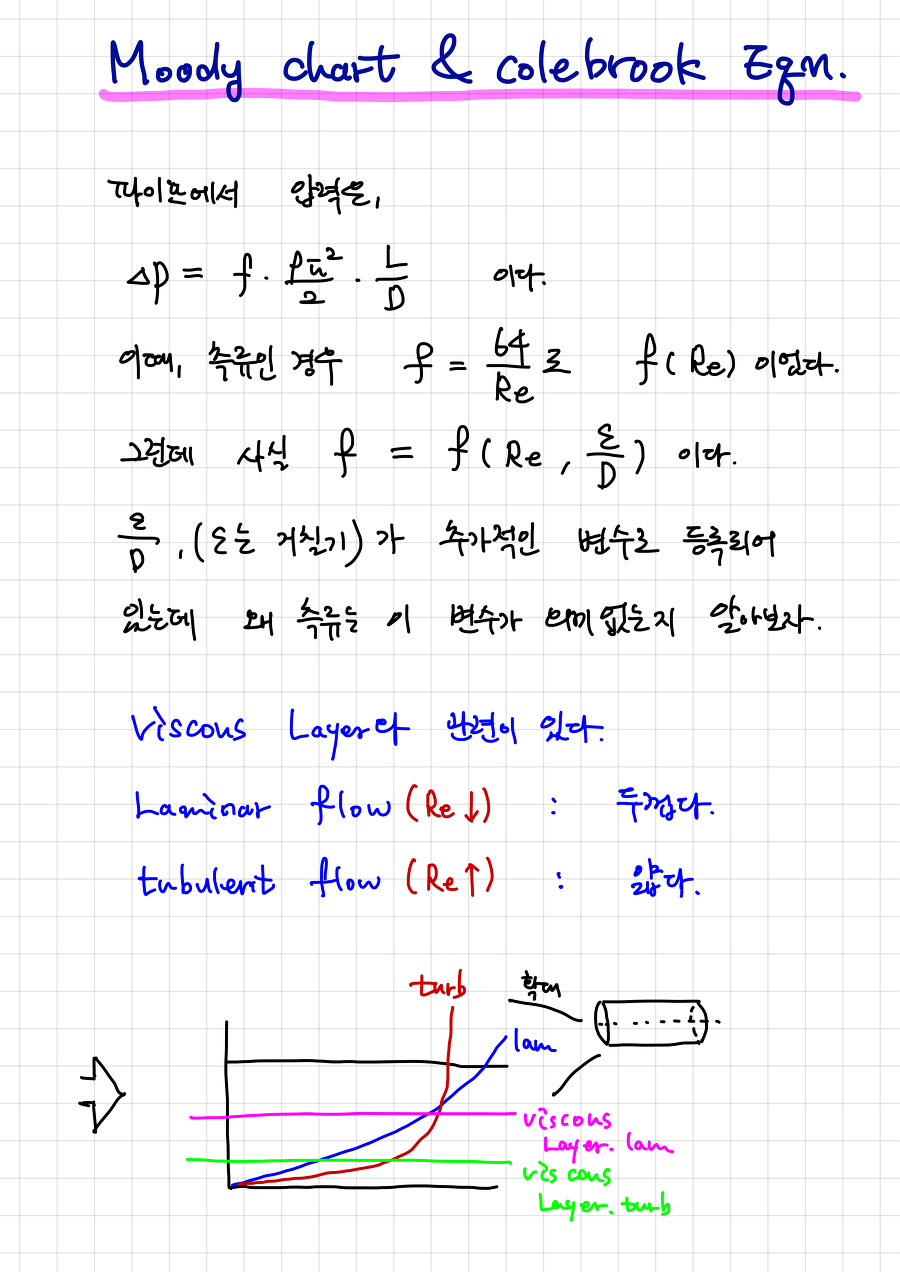 Moody chart & colebrook Eqn.
파이프에서 압력은,
Δp = f · ρū²/2 · L/D 이다.
이때, 층류인 경우 f = 64/Re 로 f(Re) 이었다.
그런데 사실 f = f(Re, ε/D) 이다.
ε/D, (ε는 거칠기)가 추가적인 변수로 등록되어
있는데 왜 층류는 이 변수가 의미없는지 알아보자.
Viscous Layer와 관련이 있다.
Laminar flow (Re↓) : 두껍다.
tubulent flow (Re↑) : 얇다.
turb
확대
lam
viscous
Layer. lam
viscous
Layer. turb